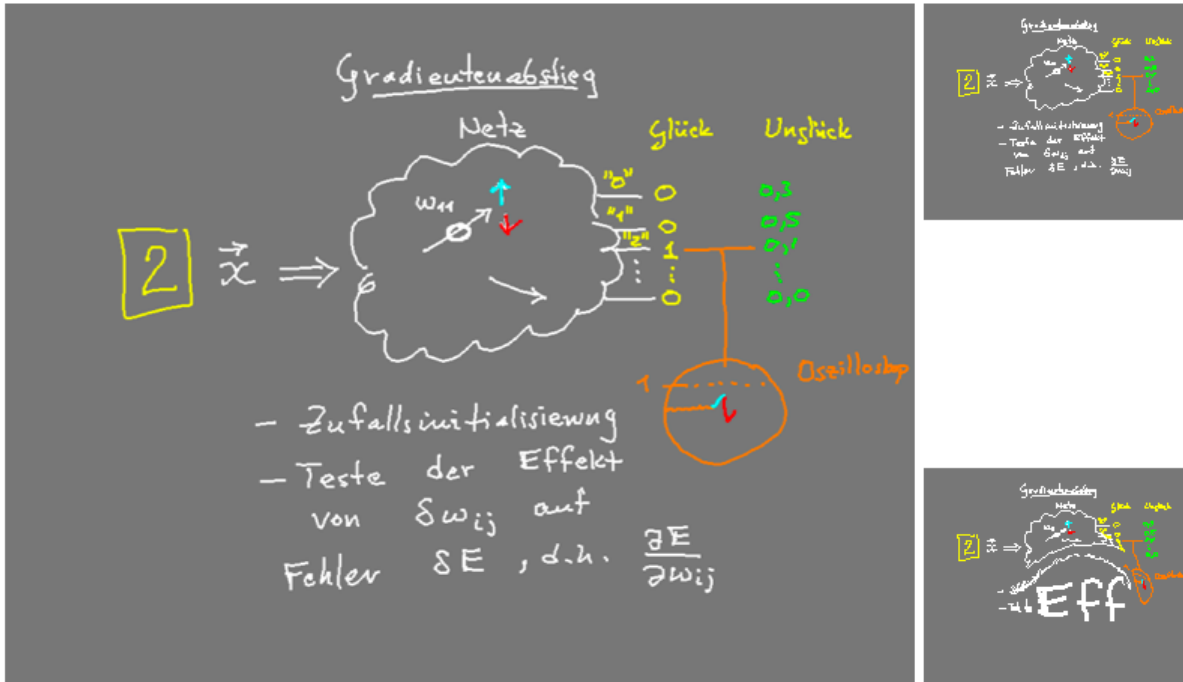 Gradientenabstieg
Netz Glück Unglück
"0" 0 0,3
w₁₁ "1" 0 0,5
2 x⃗ ⇒ "2" 1 0,1
⋮ ⋮ ⋮
0 0,0
1 Oszilloskop
- Zufallsinitialisierung
- Teste der Effekt
von δwᵢⱼ auf
Fehler δE, d.h. ∂E/∂wᵢⱼ
Gradientenabstieg
Netz Glück Unglück
2 x⃗ ⇒
- Zufallsinitialisierung
- Teste der Effekt
von δwᵢⱼ auf
Fehler δE, d.h. ∂E/∂wᵢⱼ
Gradientenabstieg
Netz Glück Unglück
2 x⃗ ⇒
Eff